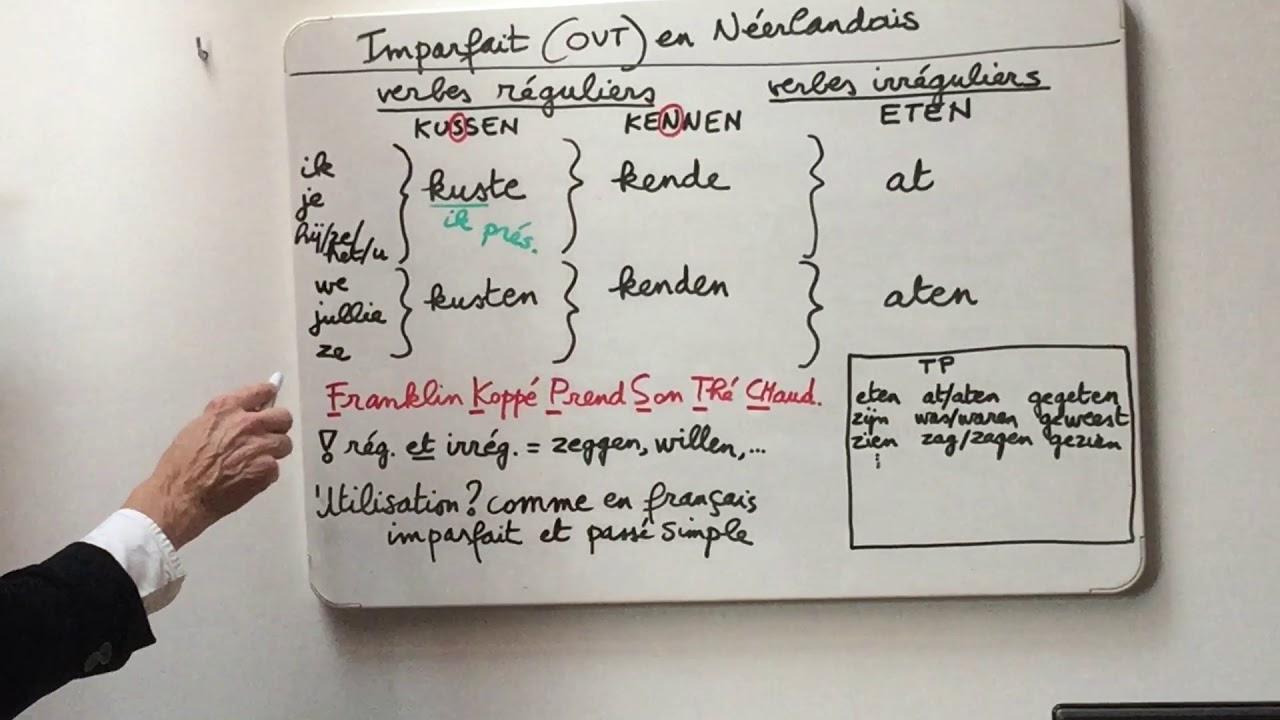 Imparfait (OVT) en Néerlandais
verbes réguliers verbes irréguliers
KUSSEN KENNEN ETEN
ik
je
hij/ze/
het/u
kuste kende at
ik prés.
we
jullie
ze
kusten kenden aten
Franklin Koppé Prend Son Thé CHaud.
! rég. et irrég. = zeggen, willen,...
Utilisation? comme en français
imparfait et passé simple
TP
eten at/aten gegeten
zijn was/waren geweest
zien zag/zagen gezien